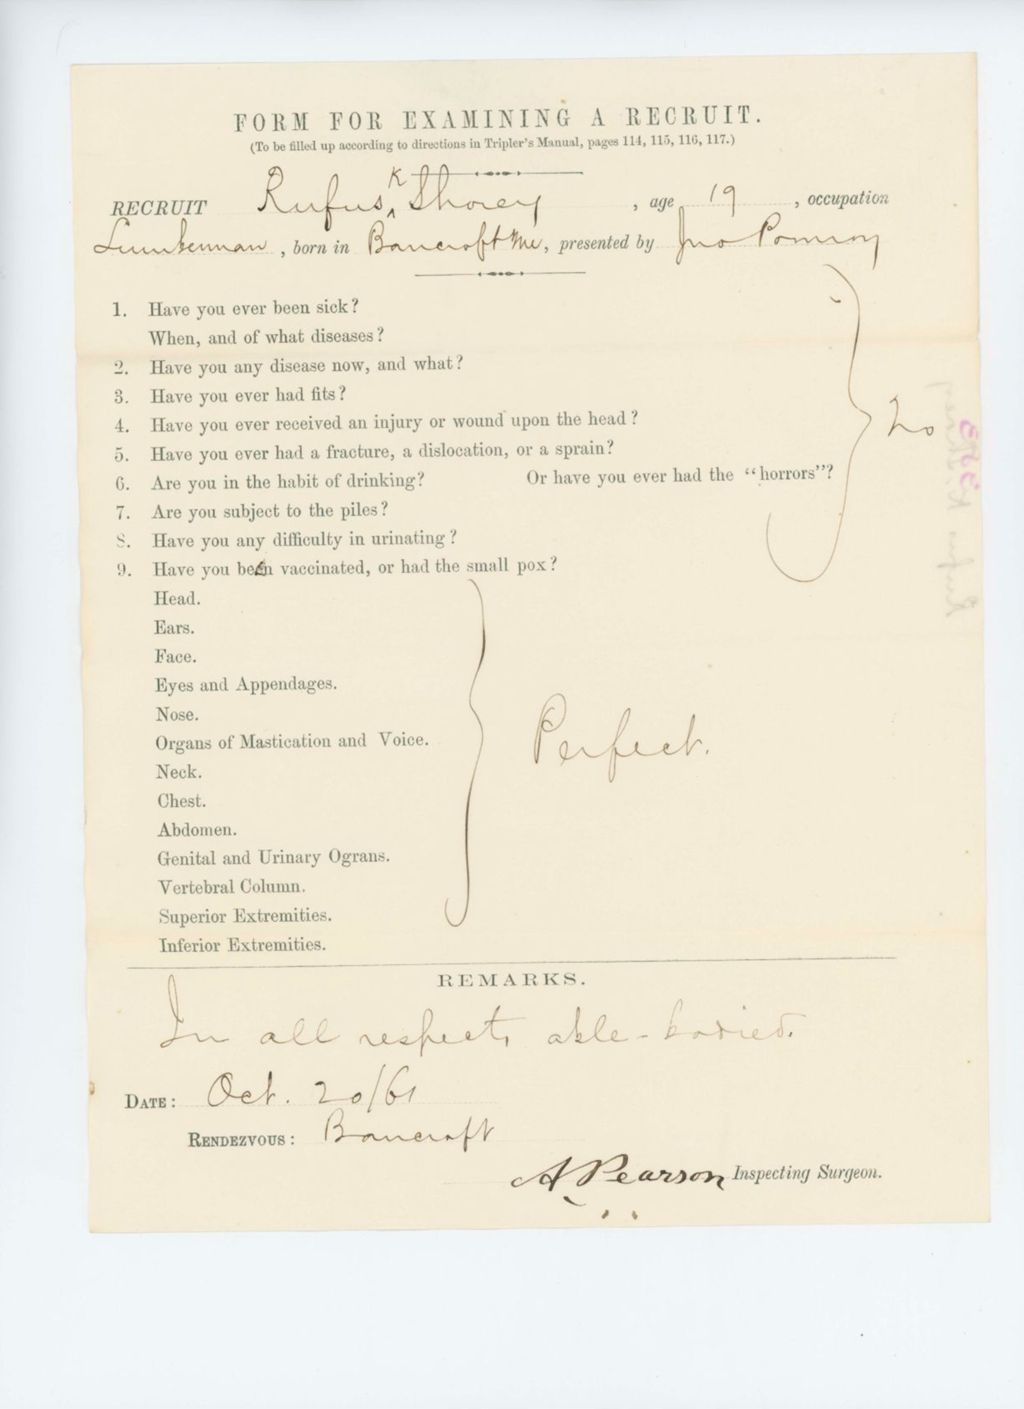 FORM FOR EXAMINING A RECRUIT.
(To be filled up according to directions in Tripler's Manual, pages 114, 115, 116, 117.)
RECRUIT Rufus K Shorey, age 19, occupation
Lumberman, born in Bancroft Me, presented by Jno Pomroy
1. Have you ever been sick?
When, and of what diseases?
2. Have you any disease now, and what?
3. Have you ever had fits?
4. Have you ever received an injury or wound upon the head?
5. Have you ever had a fracture, a dislocation, or a sprain?
6. Are you in the habit of drinking? Or have you ever had the "horrors"?
7. Are you subject to the piles?
8. Have you any difficulty in urinating?
9. Have you been vaccinated, or had the small pox?
No
Head.
Ears.
Face.
Eyes and Appendages.
Nose.
Organs of Mastication and Voice.
Neck.
Chest.
Abdomen.
Genital and Urinary Ograns.
Vertebral Column.
Superior Extremities.
Inferior Extremities.
Perfect.
REMARKS.
In all respects able-bodied.
DATE: Oct. 20/61
RENDEZVOUS: Bancroft
A Pearson Inspecting Surgeon.